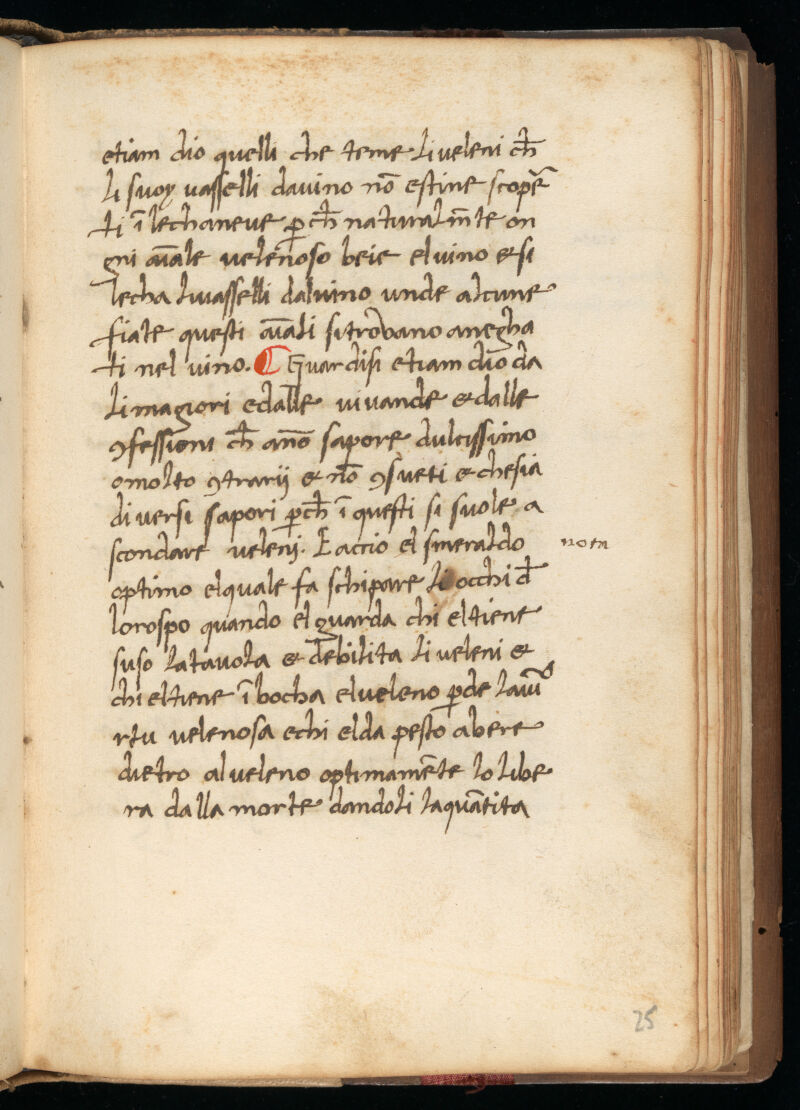 etiam dio quelli che teme li veleni ch̄
li suoy vasselli da vino nō estine scop̄er
ti ī le chaneve p̄ch̄ naturalm̄te on
gni aīale velenoso beie el vino et si
lecha li vasselli dal vino unde alcune
fiate questi aīali si trovano anegha
ti nel vino. ¶ Guardisi etiam dio da
li magiori e dalle vivande et dalle
ꝯfessioni ch̄ āno sapore dulcissimo
o molto ꝯtrarij et nō ꝯsueti et che sia
di versi sapori p̄ch̄ ī questi si suole a
scondare veleni. E accio el smeraldo
nota
optimo el quale fa schipare li occhi d̄
lo rospo quando el guarda chi el tiene
suso la tavola et debilita li veleni et
chi el tiene ī bocha el veleno p̄de la
rtu velenosa e chi el da pesto a bere
dietro al veleno optimam̄te lo libe
ra dalla morte dandoli la quātita
25